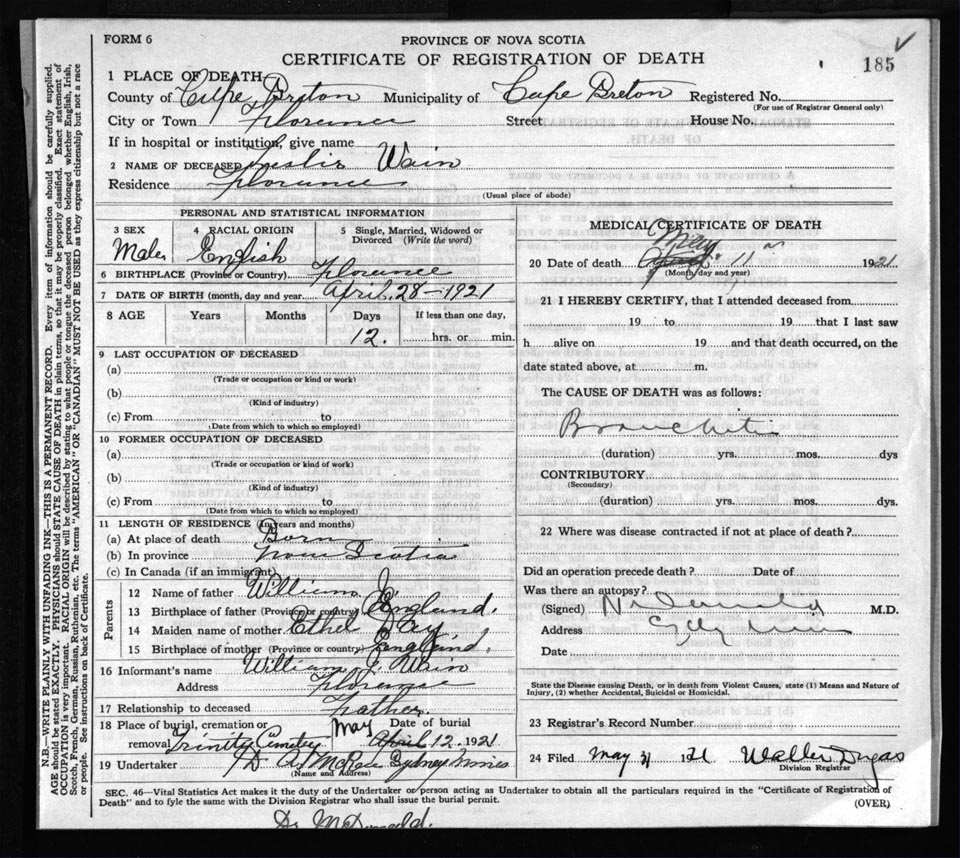 FORM 6
PROVINCE OF NOVA SCOTIA
CERTIFICATE OF REGISTRATION OF DEATH
185
1 PLACE OF DEATH
County of Cape Breton Municipality of Cape Breton Registered No.
(For use of Registrar General only)
City or Town Florence Street House No.
If in hospital or institution, give name
2 NAME OF DECEASED Leslie Wain
Residence Florence
(Usual place of abode)
PERSONAL AND STATISTICAL INFORMATION
3 SEX 4 RACIAL ORIGIN 5 Single, Married, Widowed or Divorced (Write the word)
Male English
6 BIRTHPLACE (Province or Country) Florence
7 DATE OF BIRTH (month, day and year) April 28-1921
8 AGE Years Months Days If less than one day,
12. hrs. or min.
9 LAST OCCUPATION OF DECEASED
(a)
(Trade or occupation or kind or work)
(b)
(Kind of industry)
(c) From to
(Date from which to which so employed)
10 FORMER OCCUPATION OF DECEASED
(a)
(Trade or occupation or kind of work)
(b)
(Kind of industry)
(c) From to
(Date from which to which so employed)
11 LENGTH OF RESIDENCE (In years and months)
(a) At place of death Born
(b) In province Nova Scotia
(c) In Canada (if an immigrant)
Parents
12 Name of father William J.
13 Birthplace of father (Province or country) England.
14 Maiden name of mother Ethel
15 Birthplace of mother (Province or country) England.
16 Informant's name William J. Wain
Address Florence
17 Relationship to deceased Father.
18 Place of burial, cremation or removal Trinity Cemetery
Date of burial May April 12. 1921
19 Undertaker D. A. McRae Sydney Mines
(Name and Address)
MEDICAL CERTIFICATE OF DEATH
May
20 Date of death April 11 1921
(Month, day and year)
21 I HEREBY CERTIFY, that I attended deceased from
19 to 19 that I last saw
h alive on 19 and that death occurred, on the
date stated above, at m.
The CAUSE OF DEATH was as follows:
Bronchitis
(duration) yrs. mos. dys
CONTRIBUTORY
(Secondary)
(duration) yrs. mos. dys.
22 Where was disease contracted if not at place of death?
Did an operation precede death? Date of
Was there an autopsy?
(Signed) M.D.
Address
Date
State the Disease causing Death, or in death from Violent Causes, state (1) Means and Nature of
Injury, (2) whether Accidental, Suicidal or Homicidal.
23 Registrar's Record Number
24 Filed May 31 1921 Walter Dugas
Division Registrar
SEC. 46—Vital Statistics Act makes it the duty of the Undertaker or person acting as Undertaker to obtain all the particulars required in the "Certificate of Registration of
Death" and to fyle the same with the Division Registrar who shall issue the burial permit.
(OVER)
Dr McDonald.
N.B.—WRITE PLAINLY WITH UNFADING INK—THIS IS A PERMANENT RECORD. Every item of information should be carefully supplied.
AGE should be stated EXACTLY. PHYSICIANS should STATE CAUSE OF DEATH in plain terms, so that it may be properly classified. Exact statement of
OCCUPATION is very important. RACIAL ORIGIN will be described by stating to what people or tongue the deceased person belonged whether English, Irish,
Scotch, French, German, Russian, Ruthenian, etc. The terms "AMERICAN" OR "CANADIAN" MUST NOT BE USED as they express citizenship but not a race
or people. See instructions on back of Certificate.